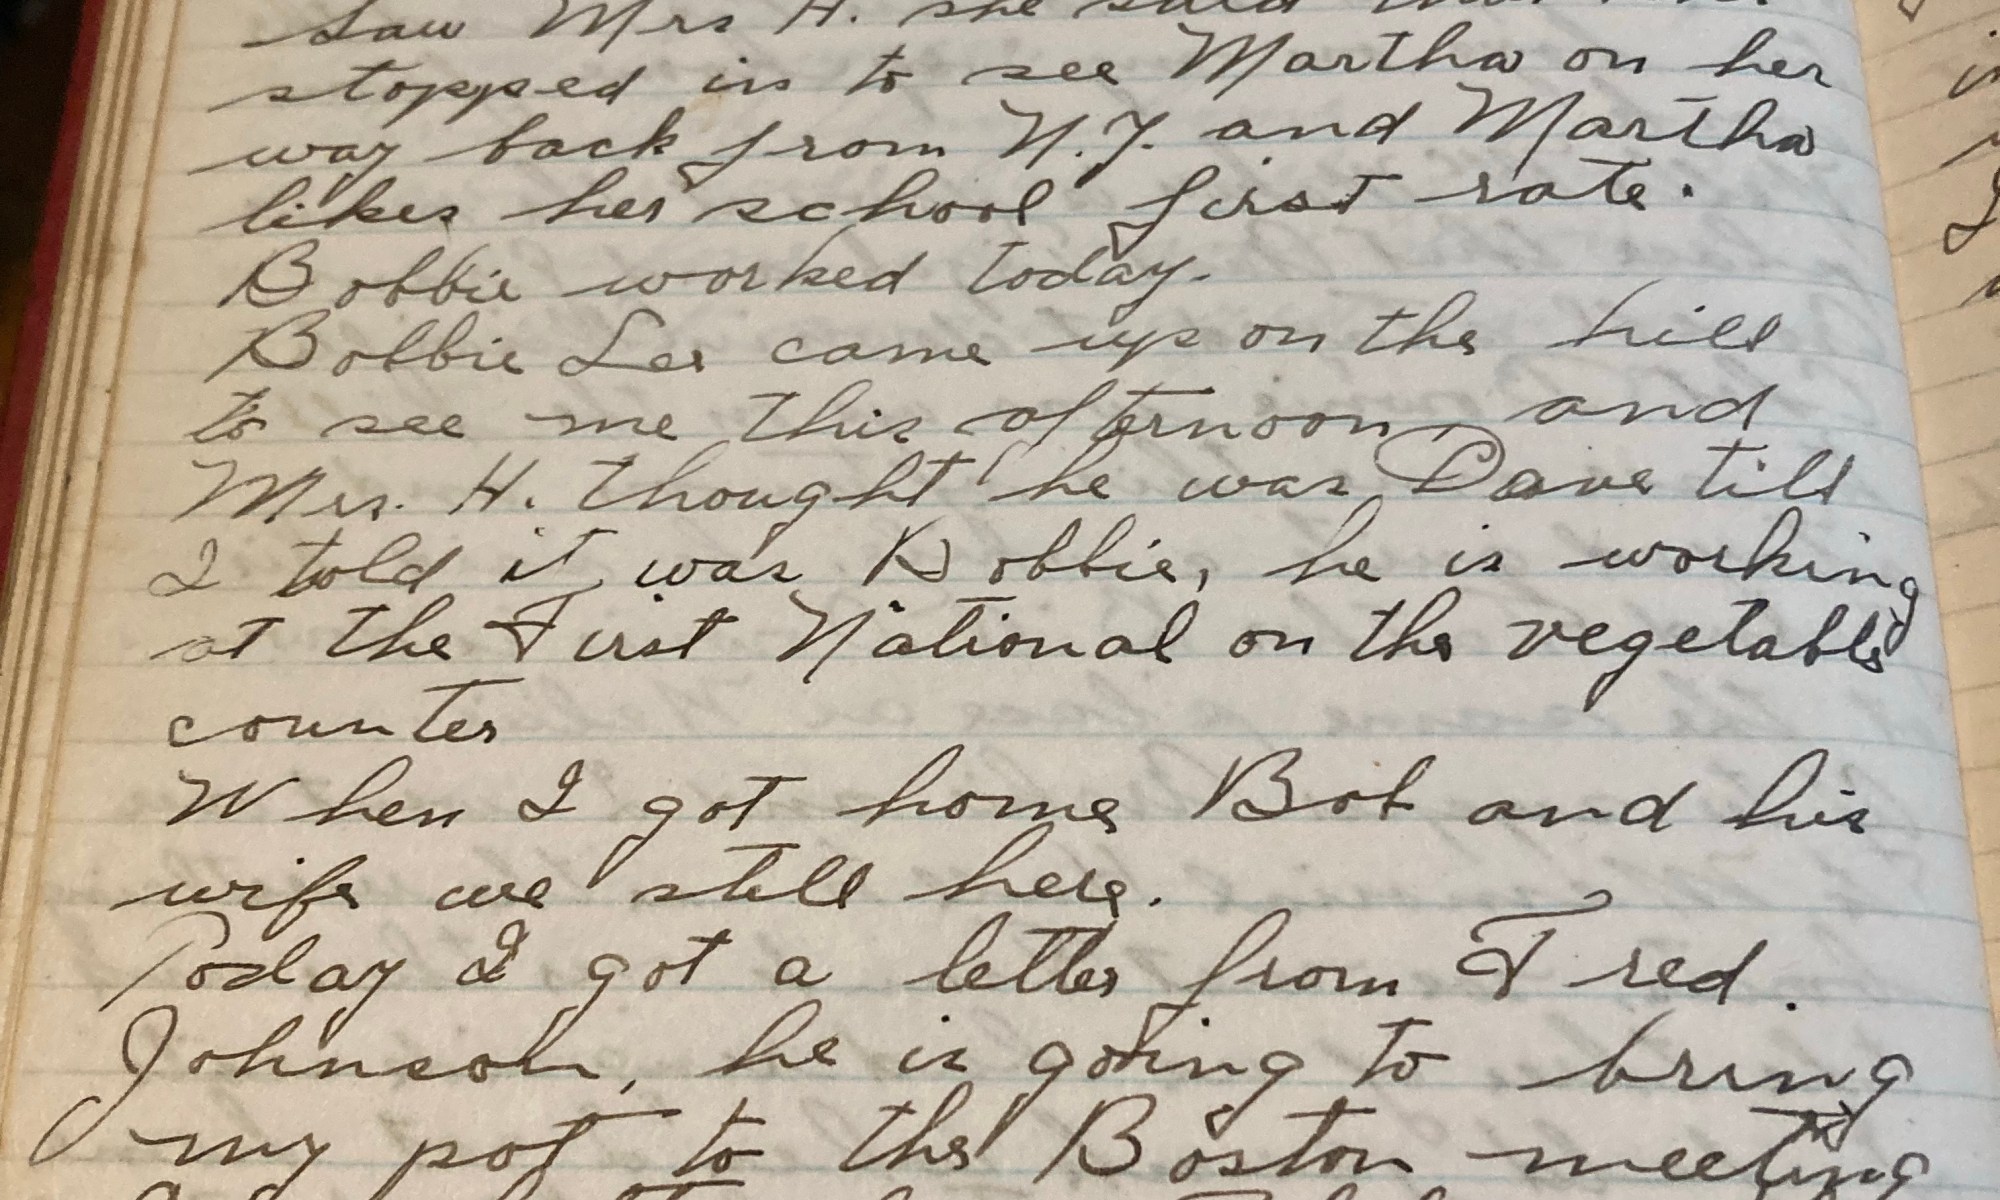 Saw Mrs H. she said that
stopped in to see Martha on her
way back from N.Y. and Martha
likes her school first rate.
Bobbie worked today.
Bobbie Lee came up on the hill
to see me this afternoon, and
Mrs. H. thought he was Dave till
I told it was Bobbie, he is working
at the First National on the vegetable
counter
When I got home Bob and his
wife we still here.
Today I got a letter from Fred.
Johnson, he is going to bring
my pot to the Boston meeting